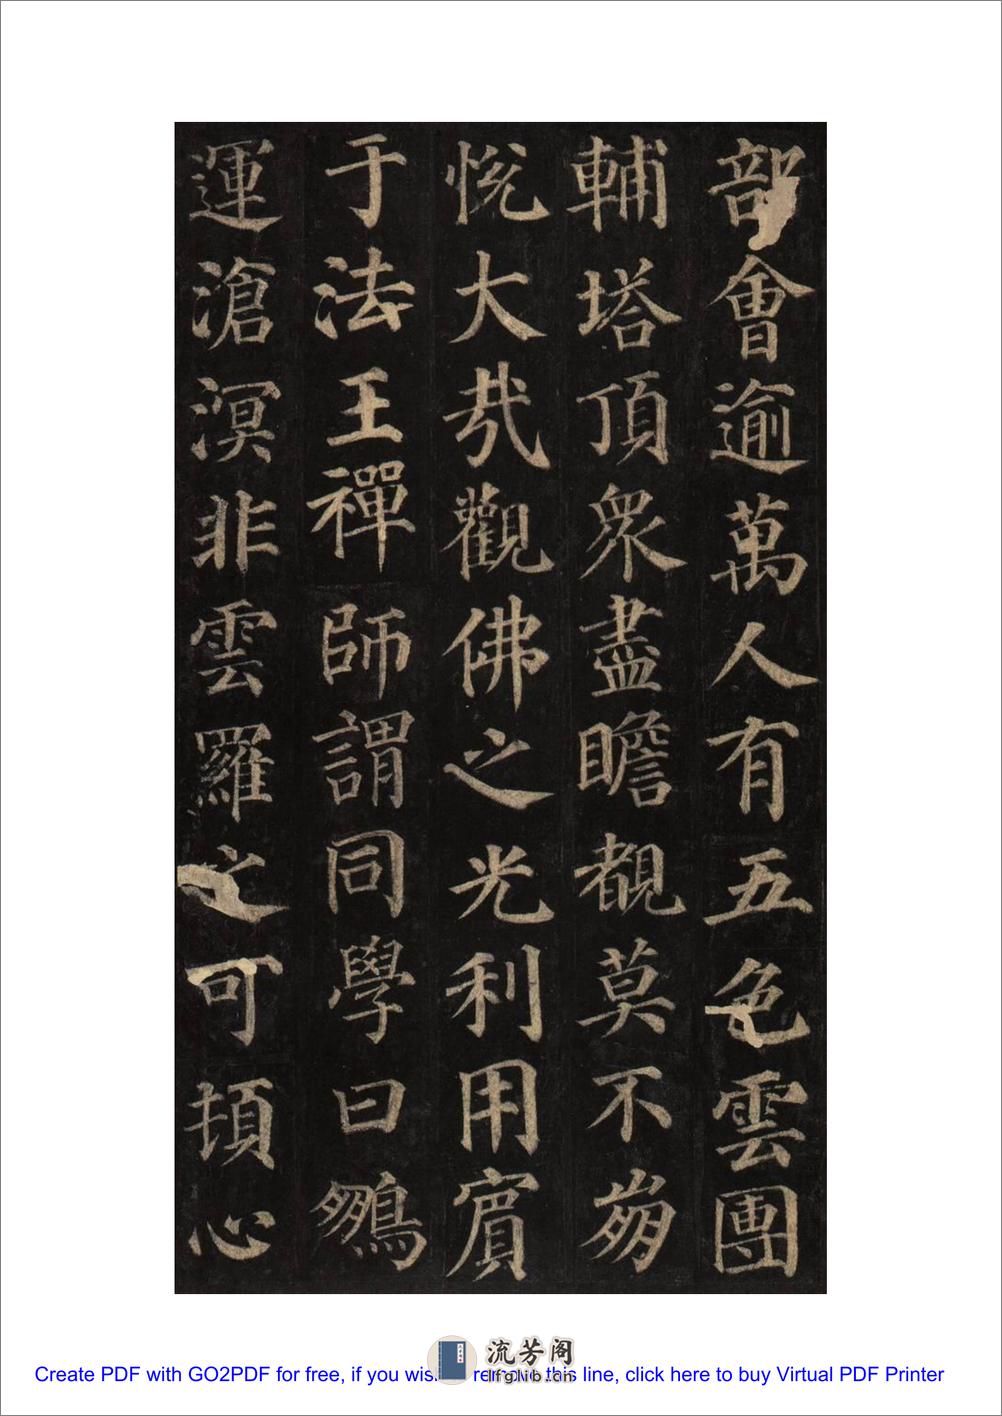 部會逾萬人有五色雲團
輔塔頂眾盡瞻覩莫不崩
悅大哉觀佛之光利用賓
于法王禪師謂同學曰鵬
運滄溟非雲羅之可頓心
流芳阁
lfglib.cn
Create PDF with GO2PDF for free, if you wish to remove this line, click here to buy Virtual PDF Printer